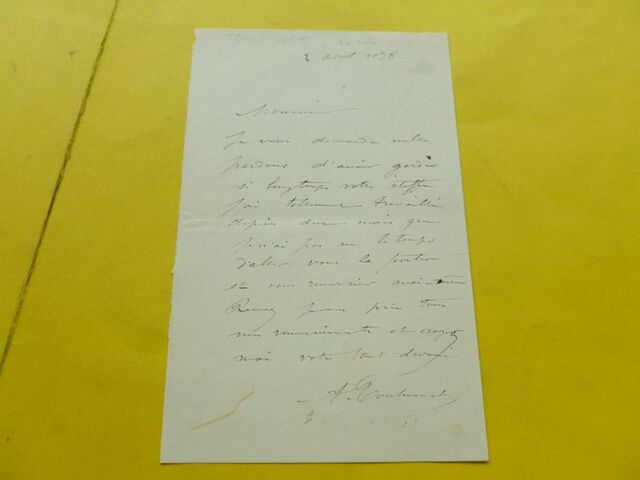 TOULMOUCHE
2 avril 1876
Monsieur
Je vous demande mille
pardons d'avoir gardé
si longtemps votre étoffe
j'ai tellement travaillé
depuis deux mois que
je n'ai pas eu le temps
d'aller vous la porter
et vous remercier
Recevez pour
mes remerciements et croyez
moi votre tout dévoué
A. Toulmouche